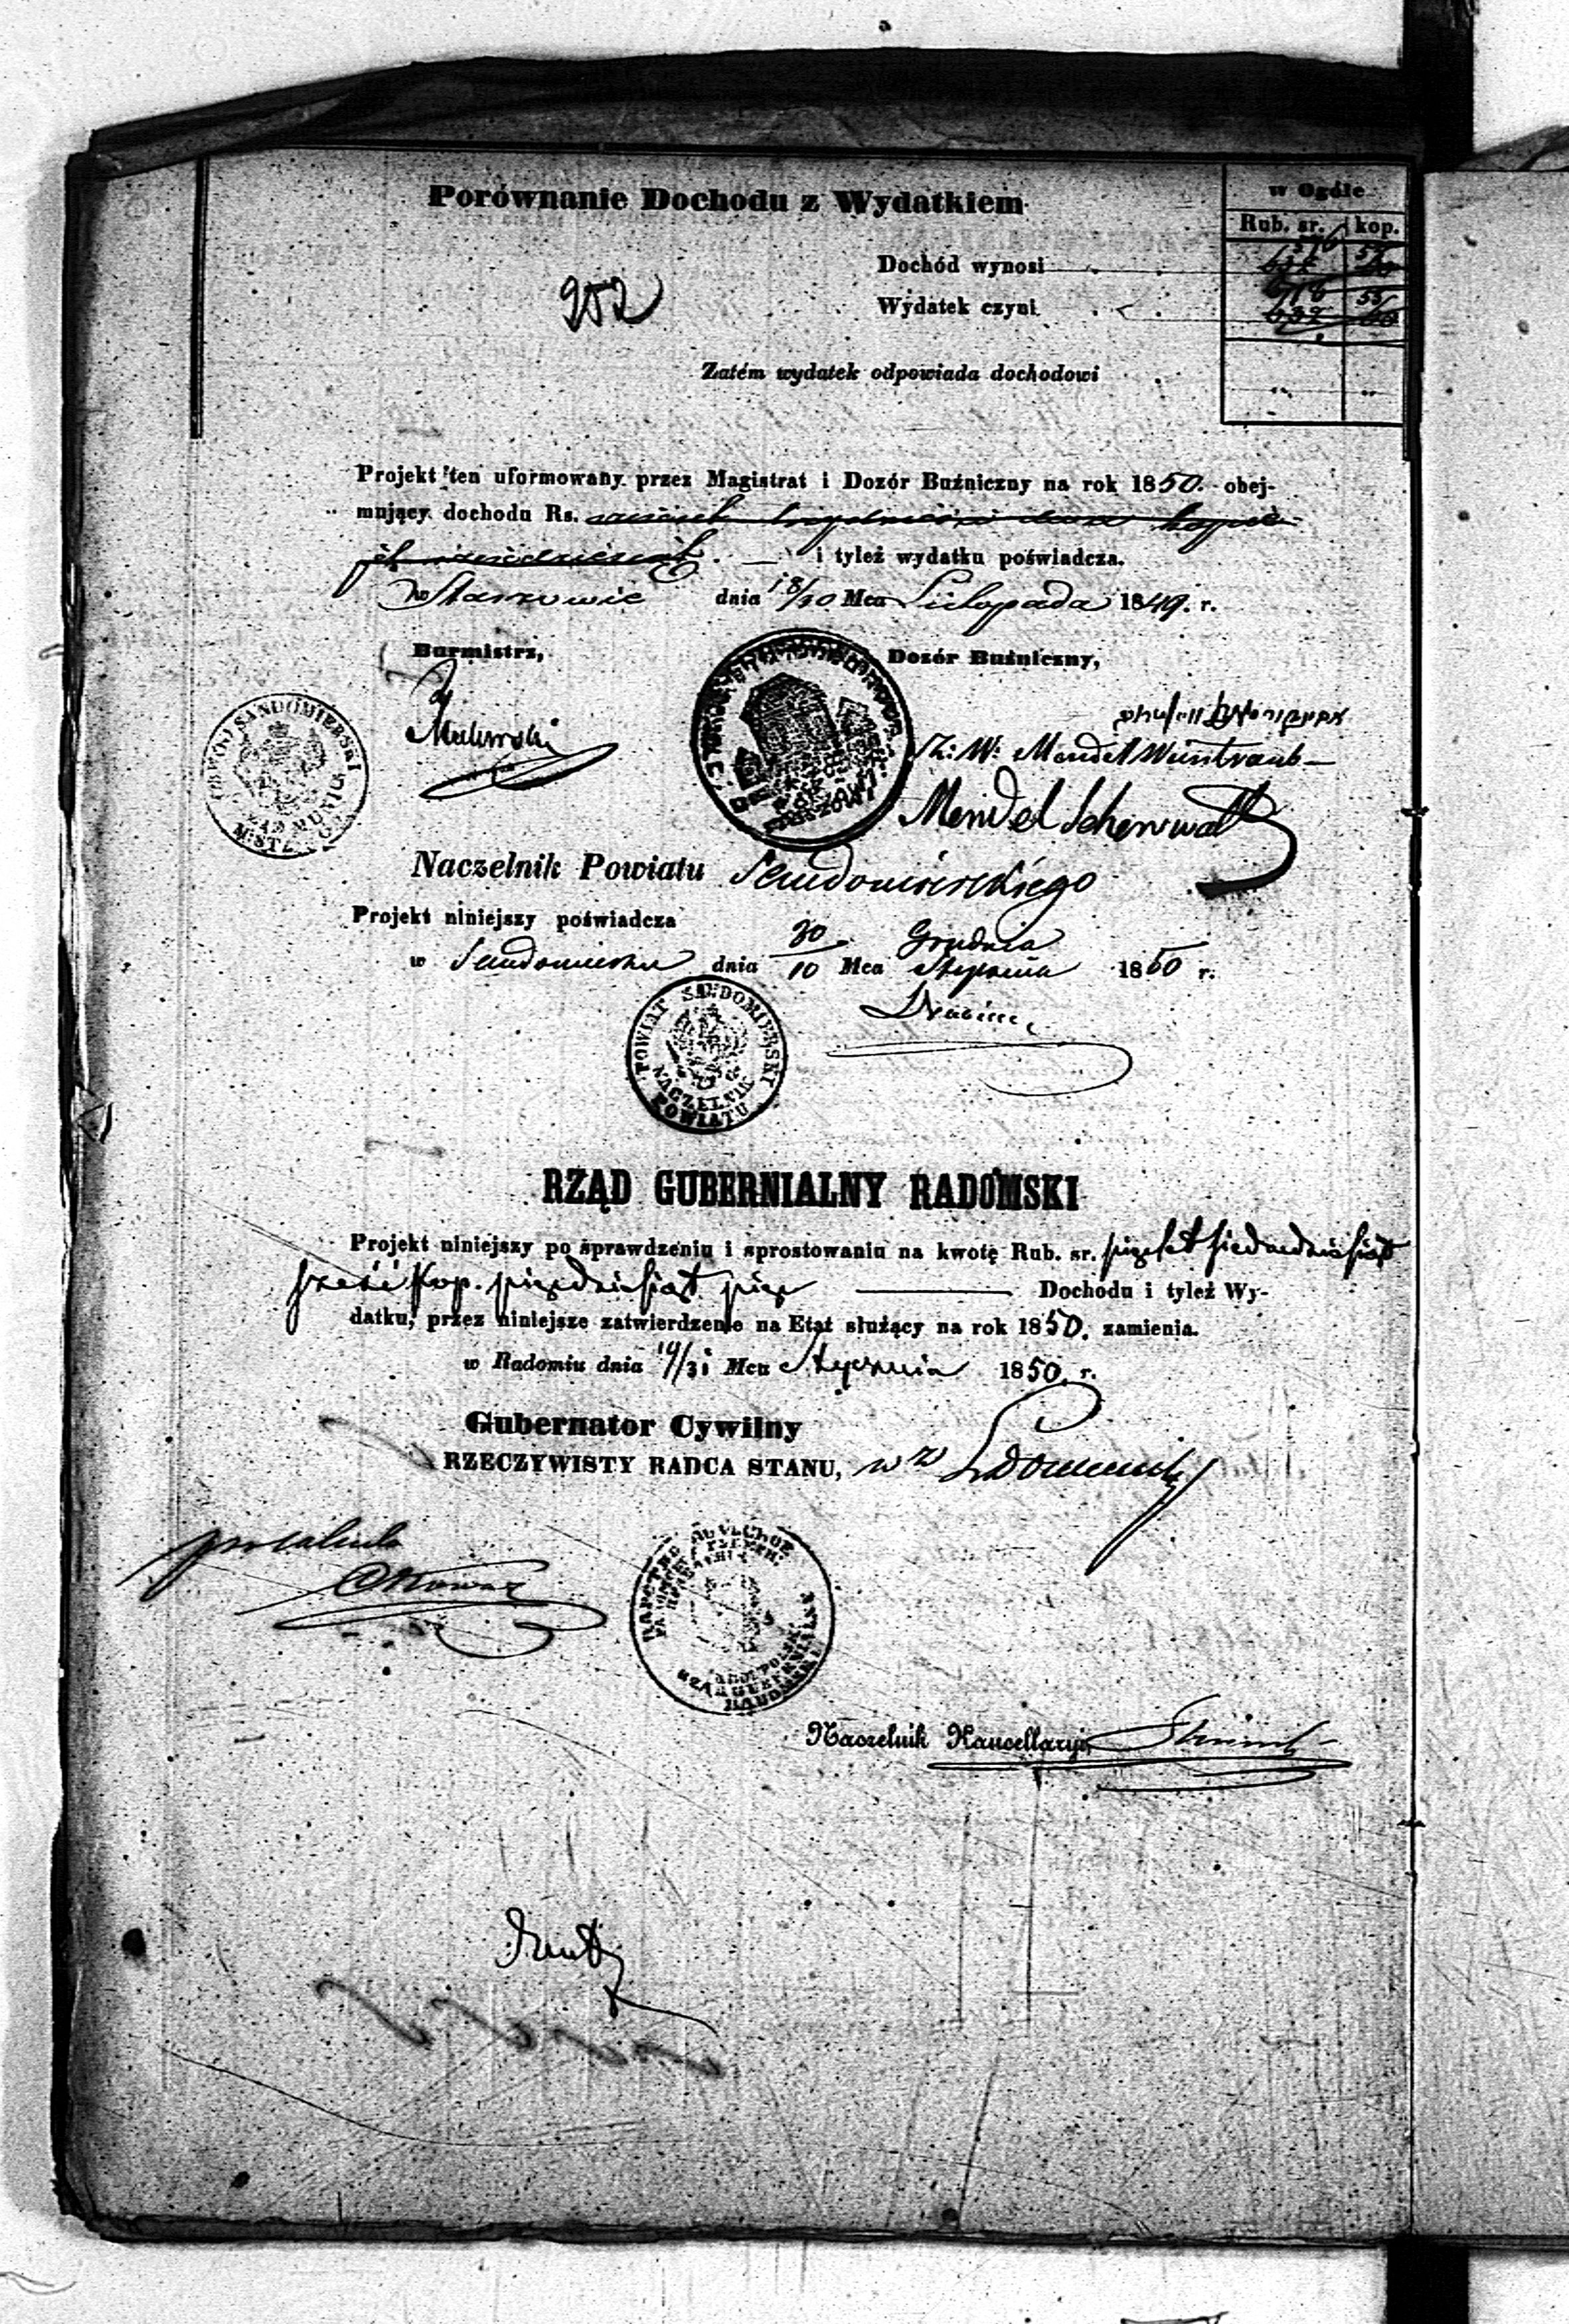 Porównanie Dochodu z Wydatkiem
w Ogóle
Rub. sr. kop.
576 55
Dochód wynosi 632 60
576 55
Wydatek czyni 632 60
252
Zatém wydatek odpowiada dochodowi
Projekt ten uformowany przez Magistrat i Dozór Buźniczny na rok 1850 obej-
mujący dochodu Rs. sześćset trzydzieści dwa kopie-
jek sześćdziesiąt i tyleż wydatku poświadcza.
w Staszowie dnia 18/30 Mca Listopada 1849. r.
Burmistrz,
Dozór Buźniczny,
Sz: W: Mendel Weintraub
Mendel
OBWOD SANDOMIERSKI
POWIAT SANDOMIERSKI
NACZELNIK
POWIATU
Naczelnik Powiatu Sandomierskiego
Projekt niniejszy poświadcza
w Sandomierzu dnia 30/10 Mca Grudnia Stycznia 1850 r.
RZĄD GUBERNIALNY RADOMSKI
Projekt niniejszy po sprawdzeniu i sprostowaniu na kwotę Rub. sr. pięćset siedmdziesiąt
sześć kop. pięćdziesiąt pięć Dochodu i tyleż Wy-
datku, przez niniejsze zatwierdzenie na Etat służący na rok 1850. zamienia.
w Radomiu dnia 19/31 Mca Stycznia 1850. r.
Gubernator Cywilny
RZECZYWISTY RADCA STANU, w z
Naczelnik Kancellaryi